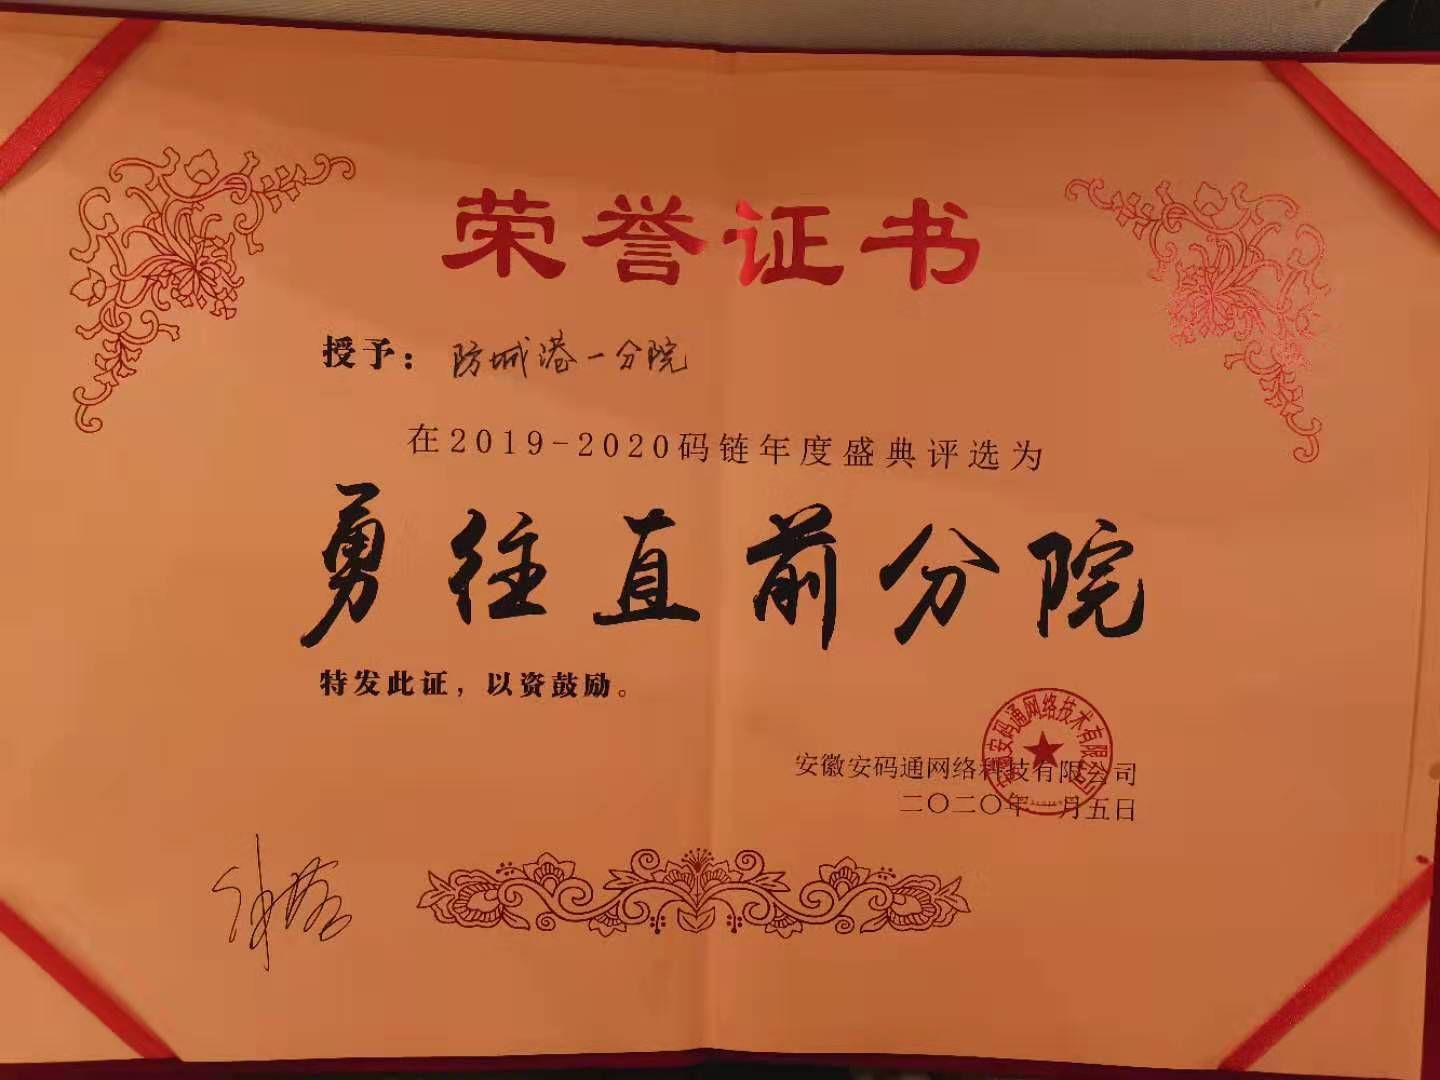 荣誉证书
授予：防城港一分院
在2019-2020码链年度盛典评选为
勇往直前分院
特发此证，以资鼓励。
安徽安码通网络技术有限公司
安徽安码通网络科技有限公司
二〇二〇年一月五日